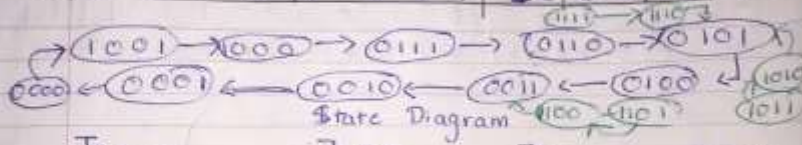 1111 → 1110
1001 → 1000 → 0111 → 0110 → 0101
0000 ← 0001 ← 0010 ← 0011 ← 0100 1010
State Diagram 1100 1101 1011